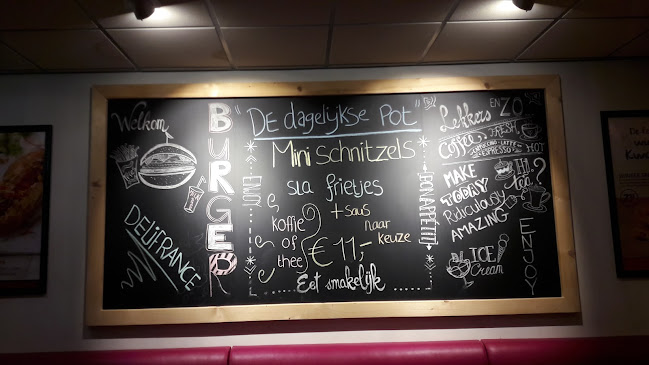 Welkom
DELIFRANCE
BURGER
"DE dagelijkse POT"
Mini Schnitzels
sla frietjes
+ saus
naar
keuze
koffie
of
thee
€ 11,-
Eet smakelijk
ENJOY
BON APPETIT
Lekkers
EN ZO
Coffee
FRESH
LATTE
ESPRESSO
HOT
MAKE
TODAY
Ridiculously
AMAZING
Tea
?
ICE
Cream
ENJOY